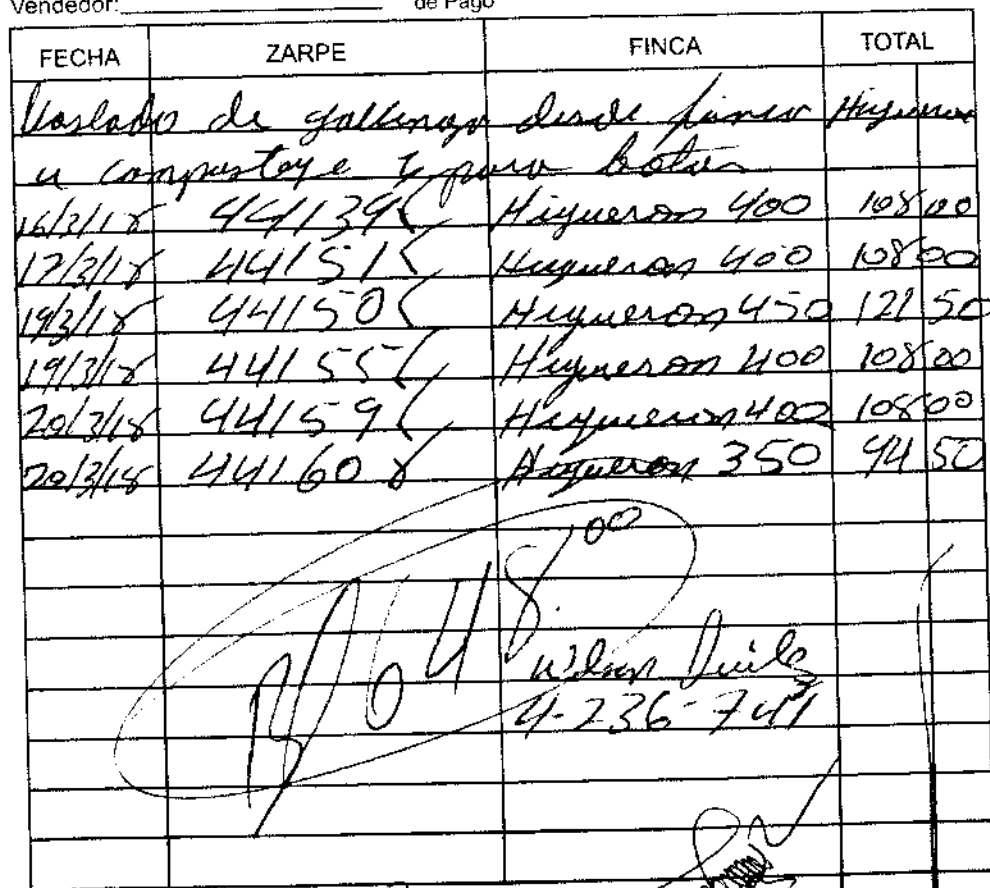 Vendedor: de Pago
FECHA ZARPE FINCA TOTAL
Traslado de gallinaza desde finca Higueron
a compostaje y para botar
16/3/18 44139 Higueron 400 108 00
17/3/18 44151 Higueron 400 108 00
19/3/18 44150 Higueron 450 121 50
19/3/18 44155 Higueron 400 108 00
20/3/18 44159 Higueron 400 108 00
20/3/18 44160 Higueron 350 94 50
4-236-741